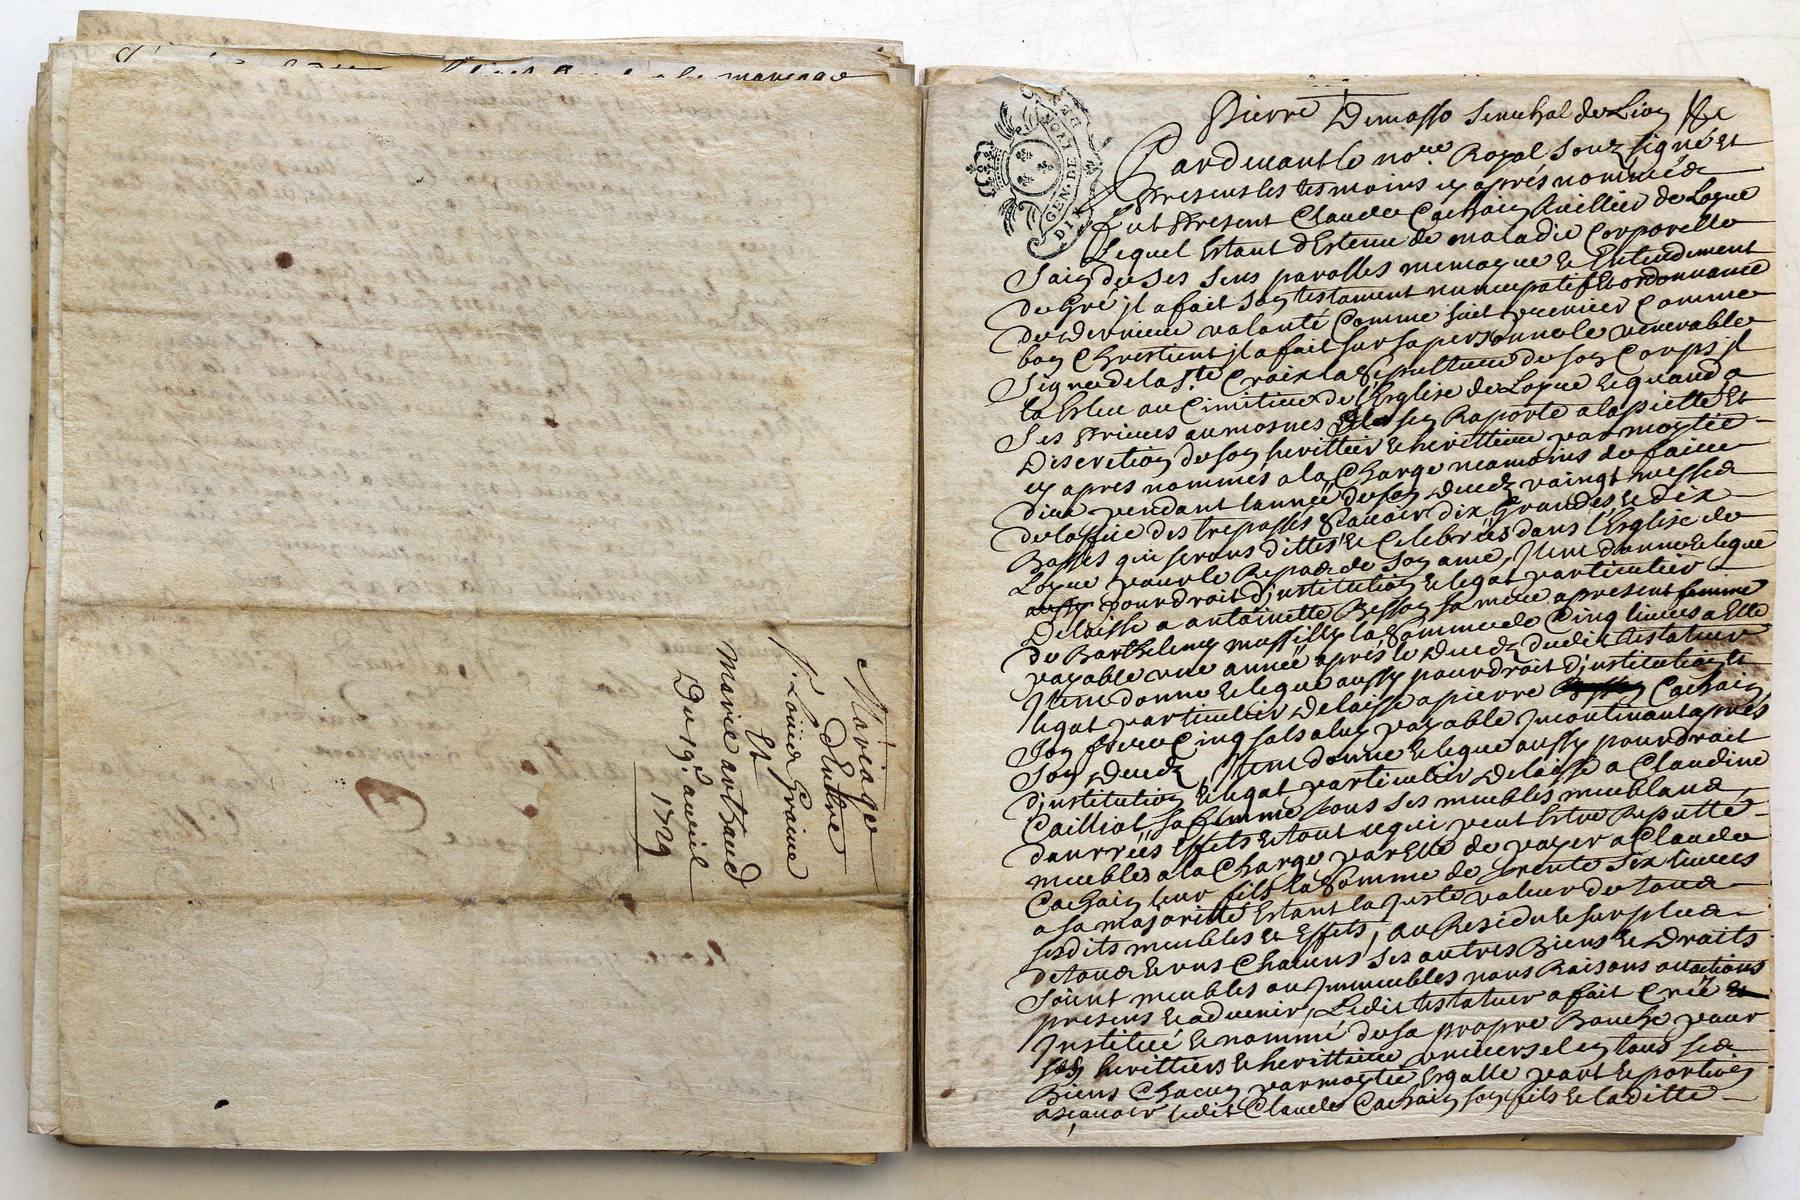 Mariage
d'Entre
s.r Louis Graine
Et
Marie arthaud
Du 19.e auril
1729
GEN. DE LYON
DIX
Pierre Demasso Senechal de Lion &c
Pardeuant le no.re Royal Souz signé et
Presens les tesmoins cy apres nommés
fut Present Claude Cachain de Loyue
Lequel Estant detenu de maladie Corporelle
Sain de ses sens parolles memoyre & Entendement
de Gré jl a fait son testament nuncupatif & ordonnance
de derniere valonté Comme suit premier Comme
bon Chrestient jl a fait sur sa personne le venerable
Signe de la S.te Croix la Sepulture de son Corps jl
la Esleu au Cimitiere de l'Esglise de Loyue & quand a
Ses Prieres aumosnes Il sen Raporte a la piette Et
Discretion de son herittier & herittiere par moytié
cy apres nommés a la Charge neamoins de faire
dire pendant l'année de son deced vaingt messes
de loffice des trepassés Scauoir dix Grandes & dix
Basses qui serons dittes & Celebrées dans l'Esglise de
Loyue pour le Repos de son ame, Item donne & legue
aussy pour droit d'institution & legat particulier
Delaisse a antoinette Besson sa mere a present femme
de Barthelemy massilly la Somme de Cinq liures a Elle
payable une année aprés le deced dudit testateur
Item donne & legue aussy pour droit d'institution Et
legat particulier Delaisse a pierre Cachain
son frere Cinq sols a luy payable Incontinant apres
son deced Item donne & legue aussy pour droit
d'institution & legat particulier Delaisse a Claudine
Cailliot sa femme tous ses meubles meublans,
danrrées Effets & tout ce qui peut Estre Reputté
meubles a la Charge par Elle de payer a Claude
Cachain leur fils la Somme de trente Six liures
a sa majorité Estant la juste valeur de tous
sesdits meubles & Effets, au Residu & surplus
de tous & uns Chacuns ses autres Biens & Droits
Soient meubles ou Immeubles nons Raisons ou actions
presens & aduenir, Ledit testateur a fait Créé &
Institué & nommé de sa propre Bouche pour
ses herittiers & herittiere uniuersel en tous ses
Biens Chacun par moytié Esgalle part & portion
a scauoir ledit Claude Cachain son fils & laditte